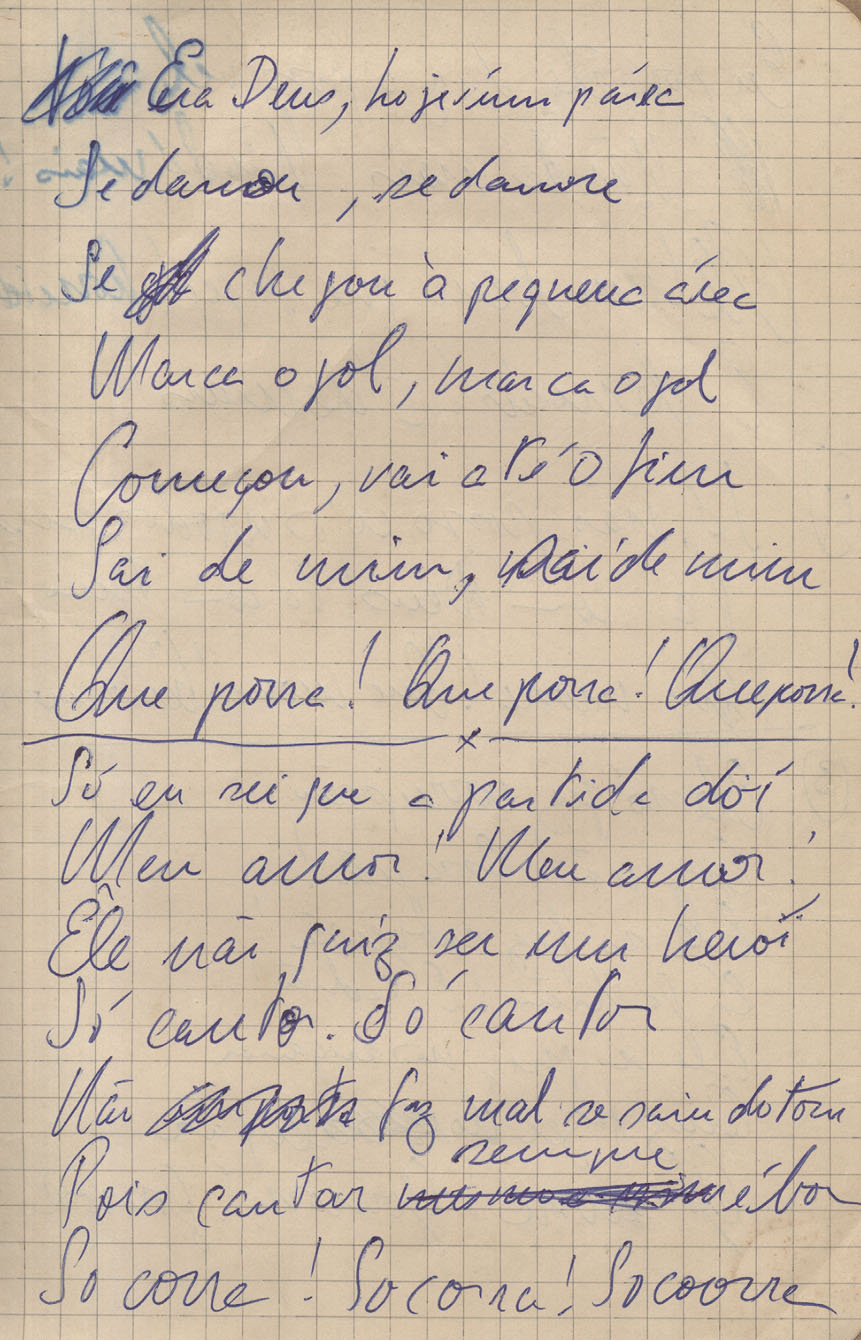 Era Deus, hoje é um pária
Se danou, se danore
Se chegou à pequena área
Marca o gol, marca o gol
Começou, vai até o fim
Sai de mim, sai de mim
Que porra! Que porra! Que porra!
Só eu sei que a partida dói
Meu amor! Meu amor!
Êle não quiz ser um herói
Só cantor. Só cantor
Não faz mal se saiu do tom
sempre
Pois cantar é bom
Socorra! Socorra! Socoorra